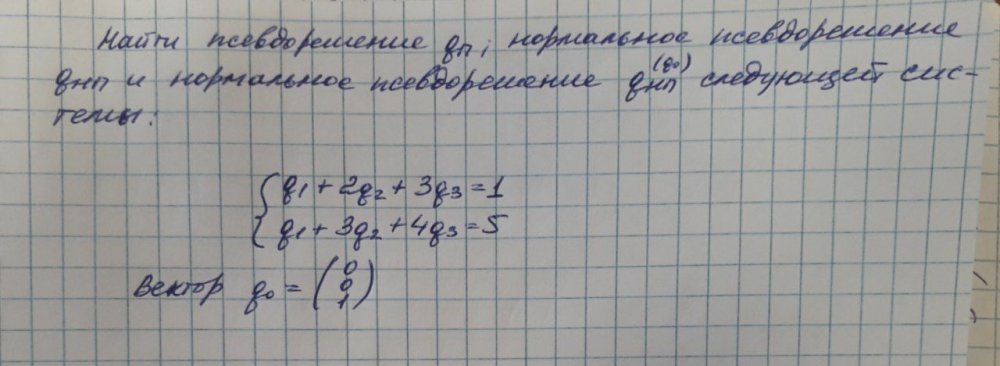 Найти псевдорешение qп, нормальное псевдорешение
qнп и нормальное псевдорешение qнп(q0) следующей сис-
темы:
q1 + 2q2 + 3q3 = 1
q1 + 3q2 + 4q3 = 5
Вектор q0 = (0 0 1)